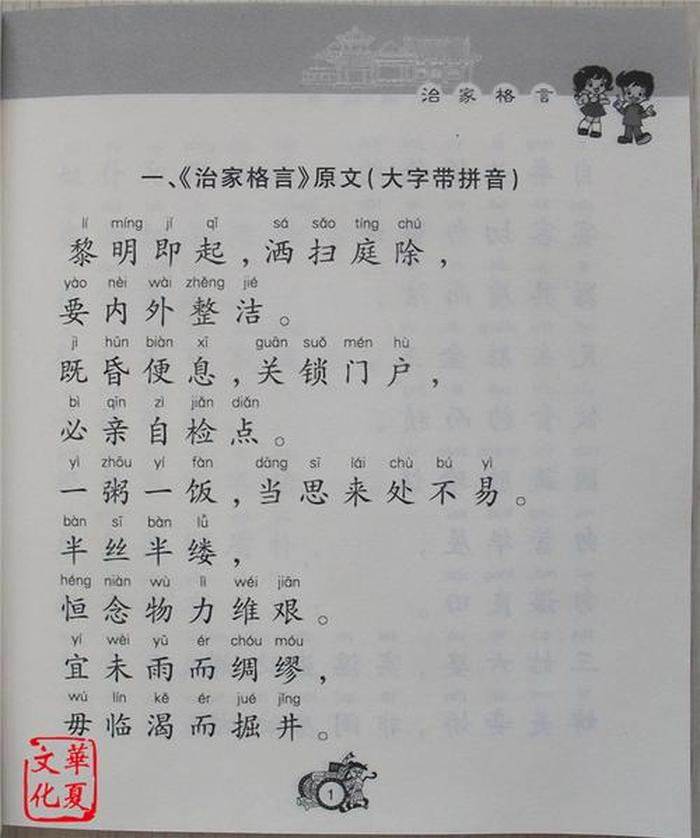 治家格言
一、《治家格言》原文(大字带拼音)
lí míng jí qǐ sǎ sǎo tíng chú
黎明即起,洒扫庭除,
yào nèi wài zhěng jié
要内外整洁。
jì hūn biàn xī guān suǒ mén hù
既昏便息,关锁门户,
bì qīn zì jiǎn diǎn
必亲自检点。
yì zhōu yí fàn dāng sī lái chù bú yì
一粥一饭,当思来处不易。
bàn sī bàn lǚ
半丝半缕,
héng niàn wù lì wéi jiān
恒念物力维艰。
yí wèi yǔ ér chóu móu
宜未雨而绸缪,
wú lín kě ér jué jǐng
毋临渴而掘井。
1
華夏
文化